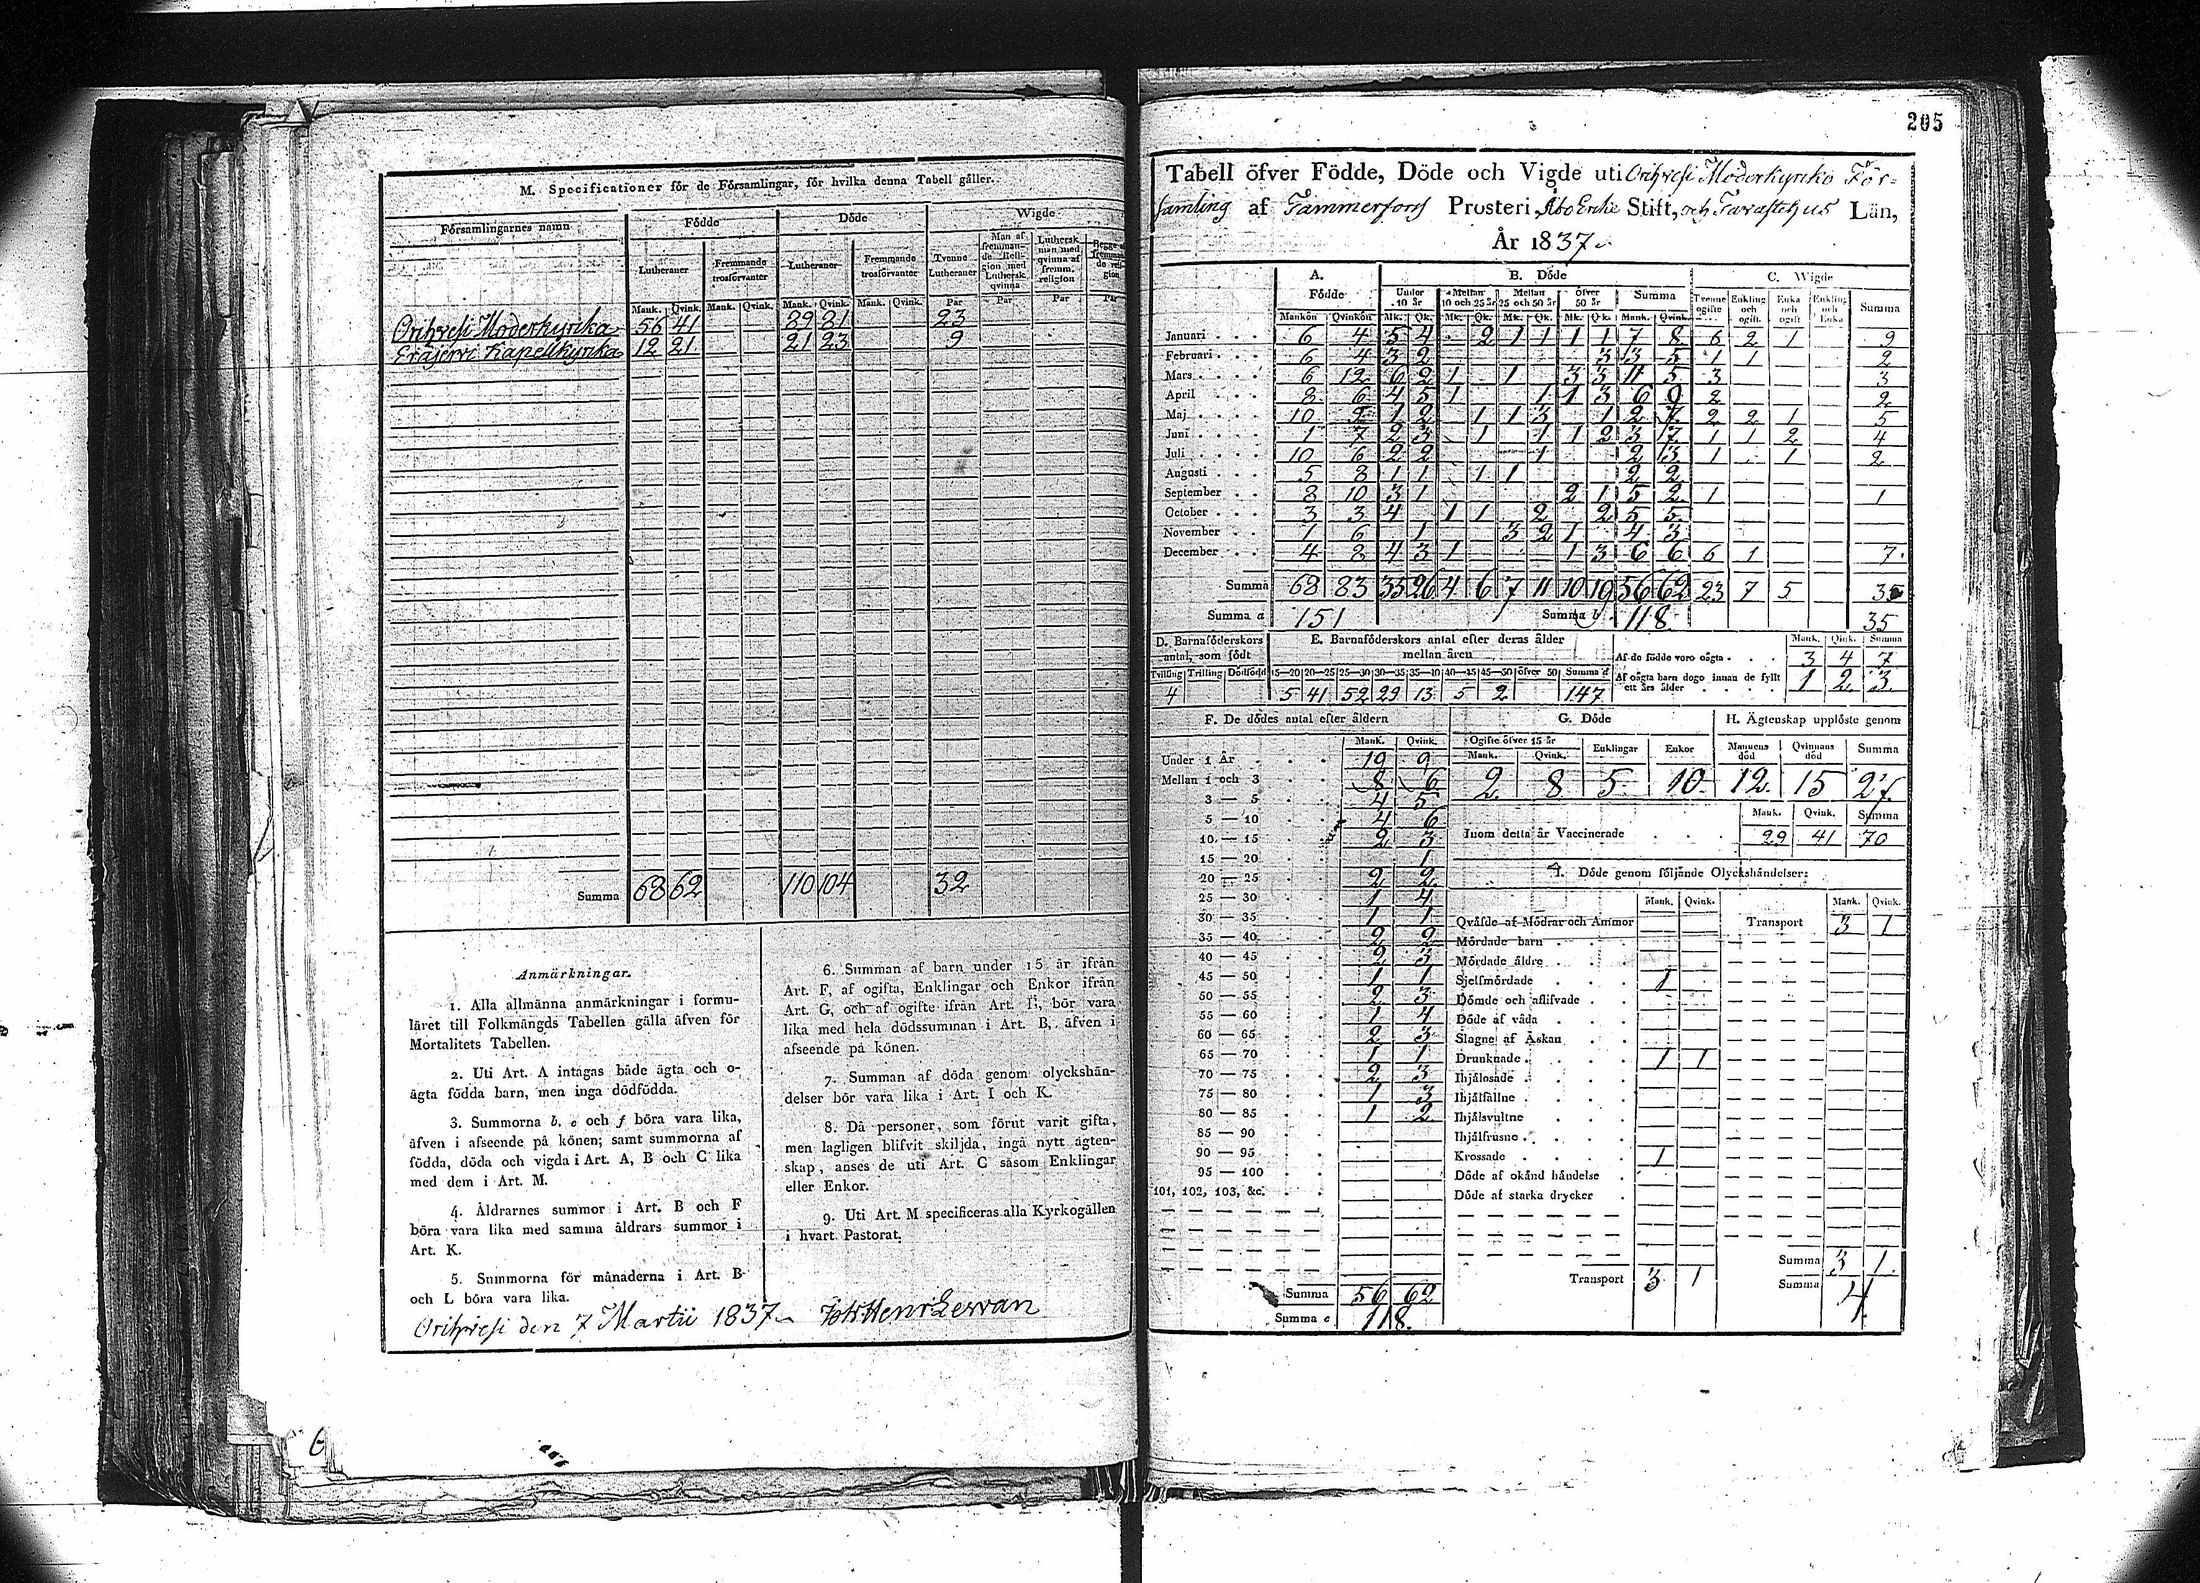 M. Specificationer för de Församlingar, för hvilka denna Tabell gäller.
Församlingarnes namn Födde Döde Wigde
Lutheraner Fremmande trosförvanter Lutheraner Fremmande trosförvanter Tvenne Lutheraner Man af fremmande Religion med Luthersk qvinna Luthersk man med qvinna af fremm. religion
Mank. Qvink. Mank. Qvink. Mank. Qvink. Mank. Qvink. Par Par Par Par
Orihvesi Moderkyrka 56 41 89 81 23
Eräjervi Kapellkyrka 12 21 21 23 9
Summa 68 62 110 104 32
Anmärkningar.
1. Alla allmänna anmärkningar i formu-
läret till Folkmängds Tabellen gälla äfven för
Mortalitets Tabellen.
2. Uti Art. A intagas både ägta och o-
ägta födda barn, men inga dödfödda.
3. Summorna b, e och f böra vara lika,
äfven i afseende på könen; samt summorna af
födda, döda och vigda i Art. A, B och C lika
med dem i Art. M.
4. Åldrarnes summor i Art. B och F
böra vara lika med samma åldrars summor i
Art. K.
5. Summorna för månaderna i Art. B
och L böra vara lika.
6. Summan af barn under 15 år ifrån
Art. F, af ogifta, Enklingar och Enkor ifrån
Art. G, och af ogifte ifrån Art. H, bör vara
lika med hela dödssumman i Art. B, äfven i
afseende på könen.
7. Summan af döda genom olyckshän-
delser bör vara lika i Art. I och K.
8. Då personer, som förut varit gifta,
men lagligen blifvit skiljda, ingå nytt ägten-
skap, anses de uti Art. C såsom Enklingar
eller Enkor.
9. Uti Art. M specificeras alla Kyrkogällen
i hvart Pastorat.
Orihvesi den 7 Martii 1837
205
Tabell öfver Födde, Döde och Vigde uti Orihvesi Moderkyrko För-
samling af Tammerfors Prosteri, Åbo Erke Stift, och Tavastehus Län,
År 1837.
A. B. Döde C. Wigde
Födde Under 10 år Mellan 10 och 25 år Mellan 25 och 50 år Öfver 50 år Summa Tvenne ogifte Enkling och ogift. Enka och ogift Enkling och Enka Summa
Mankön Qvinkön Mk. Qk. Mk. Qk. Mk. Qk. Mk. Qk. Mank. Qvink.
Januari 6 4 5 4 2 1 1 1 1 7 8 6 2 1 9
Februari 6 4 3 2 3 3 5 1 1 2
Mars 6 12 6 2 1 1 3 3 11 5 3 3
April 8 6 4 5 1 1 1 3 6 9 2 2
Maj 10 9 1 2 1 1 3 1 2 7 2 2 1 5
Juni 1 7 2 3 1 1 1 2 3 7 1 1 2 4
Juli 10 6 2 2 1 2 3 1 1 2
Augusti 5 8 1 1 1 1 2 2
September 8 10 3 1 2 1 5 2 1 1
October 3 3 4 1 1 2 2 5 5
November 1 6 1 3 2 1 4 3
December 4 8 4 3 1 1 3 6 6 6 1 7
Summa 68 83 35 26 4 6 7 11 10 19 56 62 23 7 5 35
Summa a 151 Summa b 118 35
D. Barnaföderskors antal, som födt
Tvilling Trilling Dödfödd
4
E. Barnaföderskors antal efter deras ålder
mellan åren
15—20 20—25 25—30 30—35 35—40 40—45 45—50 öfver 50 Summa d
5 41 52 29 13 5 2 147
Mank. Qink. Summa
Af de födde voro oägta 3 4 7
Af oägta barn dogo innan de fyllt ett års ålder 1 2 3
F. De dödes antal efter åldern
Mank. Qvink.
Under 1 År 19 9
Mellan 1 och 3 8 6
3 — 5 4 5
5 — 10 4 6
10 — 15 2 3
15 — 20 1
20 — 25 2 2
25 — 30 1 4
30 — 35 1 1
35 — 40 2 2
40 — 45 2 3
45 — 50 1 1
50 — 55 2 3
55 — 60 1 4
60 — 65 2 3
65 — 70 1 1
70 — 75 2 3
75 — 80 1 3
80 — 85 1 2
85 — 90
90 — 95
95 — 100
101, 102, 103, &c.
Summa 56 62
Summa e 118
G. Döde
Ogifte öfver 15 år Enklingar Enkor
Mank. Qvink.
2 8 5 10
H. Ägtenskap upplöste genom
Mannens död Qvinnans död Summa
12 15 27
Mank. Qvink. Summa
Inom detta år Vaccinerade 29 41 70
I. Döde genom följande Olyckshändelser:
Mank. Qvink. Mank. Qvink.
Qväfde af Mödrar och Ammor Transport 3 1
Mördade barn
Mördade äldre
Sjelfmördade 1
Dömde och aflifvade
Döde af våda
Slagne af Åskan
Drunknade 1 1
Ihjälosade
Ihjälfallne
Ihjälsvultne
Ihjälfrusne
Krossade 1
Döde af okänd händelse
Döde af starka drycker
Summa 3 1
Transport 3 1 Summa 4